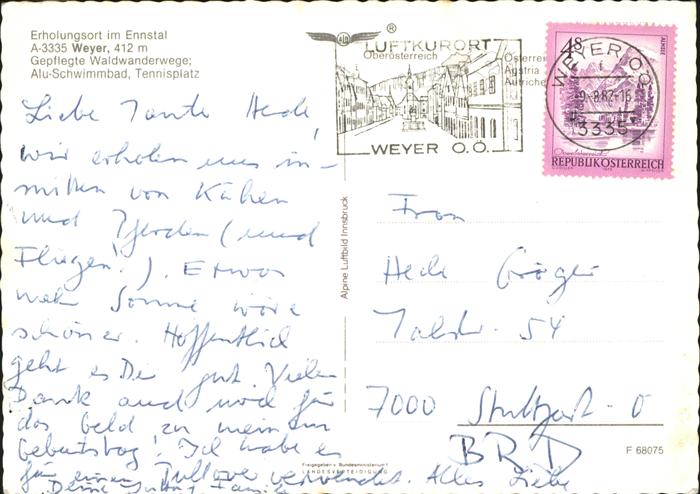 Erholungsort im Ennstal
A-3335 Weyer, 412 m
Gepflegte Waldwanderwege;
Alu-Schwimmbad, Tennisplatz
Liebe Tante Hede,
wir erholen uns in-
mitten von Kühen
und Pferden (und
Fliegen!). Etwas
mehr Sonne wäre
schöner. Hoffentlich
geht es Dir gut. Vielen
Dank auch noch für
das Geld zu meinem
Geburtstag! Ich habe es
für einen Pullover verwendet. Alles Liebe
Deine
®
LUFTKURORT
Oberösterreich
WEYER O.Ö.
Österrei
Austria
Autriche
4S
ALMSEE
WEYER, OÖ
-9.-8.82-16
3335
REPUBLIK ÖSTERREICH
Alpine Luftbild Innsbruck
Frau
Hede Gröger
Talstr. 54
7000 Stuttgart-O
BRD
F 68075
Freigegeben v. Bundesministerium f.
LANDESVERTEIDIGUNG